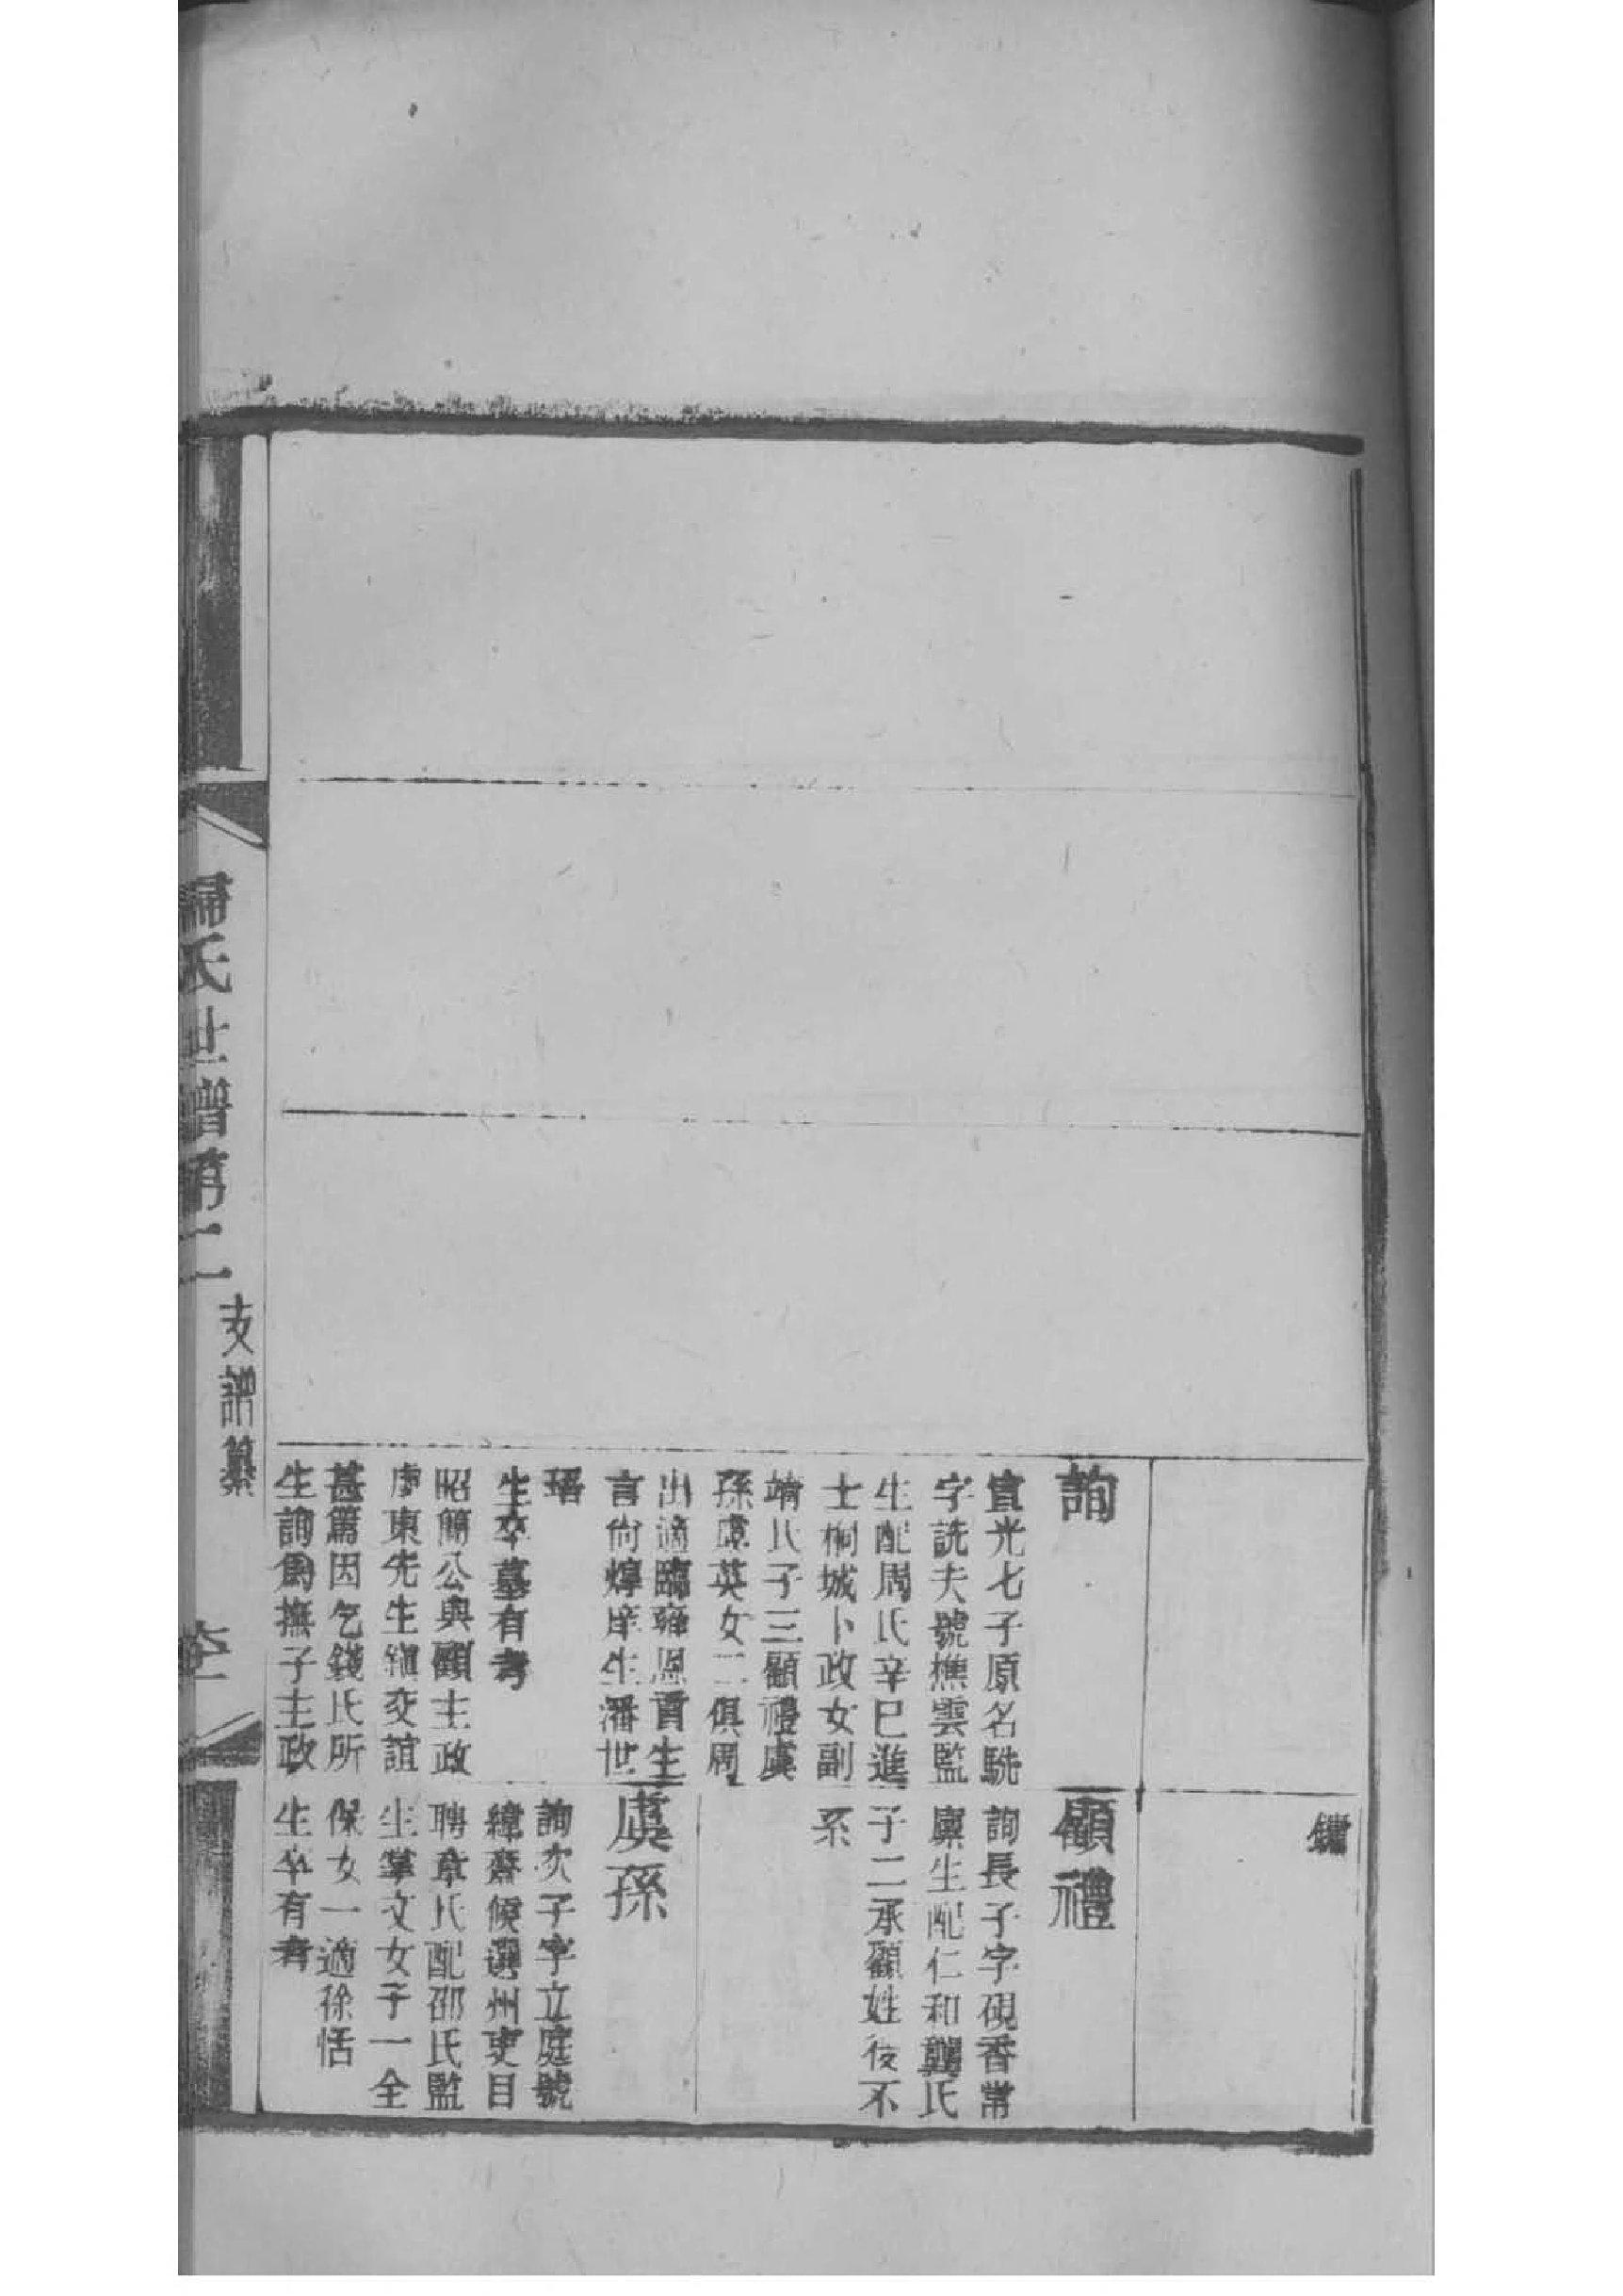 歸氏世譜第二
支譜纂
詢
宣光七子原名駪
字詵夫號樵雲監
生配周氏辛巳進
士桐城卜政女副
靖氏子三顧禮虞
孫虞英女二俱周
出適臨海
言尚煒庠生潘世
瑨
生卒墓有考
昭簡公與顧主政
虞東先生鎮交誼
甚篤因乞錢氏所
生詢為撫子主政
鏞
顧禮
詢長子字硯香常
廩生配仁和龔氏
子二承顧姓後不
系
虞孫
詢次子字立庭號
緯齋候選州吏目
聘章氏配邵氏監
生掌文女子一全
保女一適徐恬
生卒有考